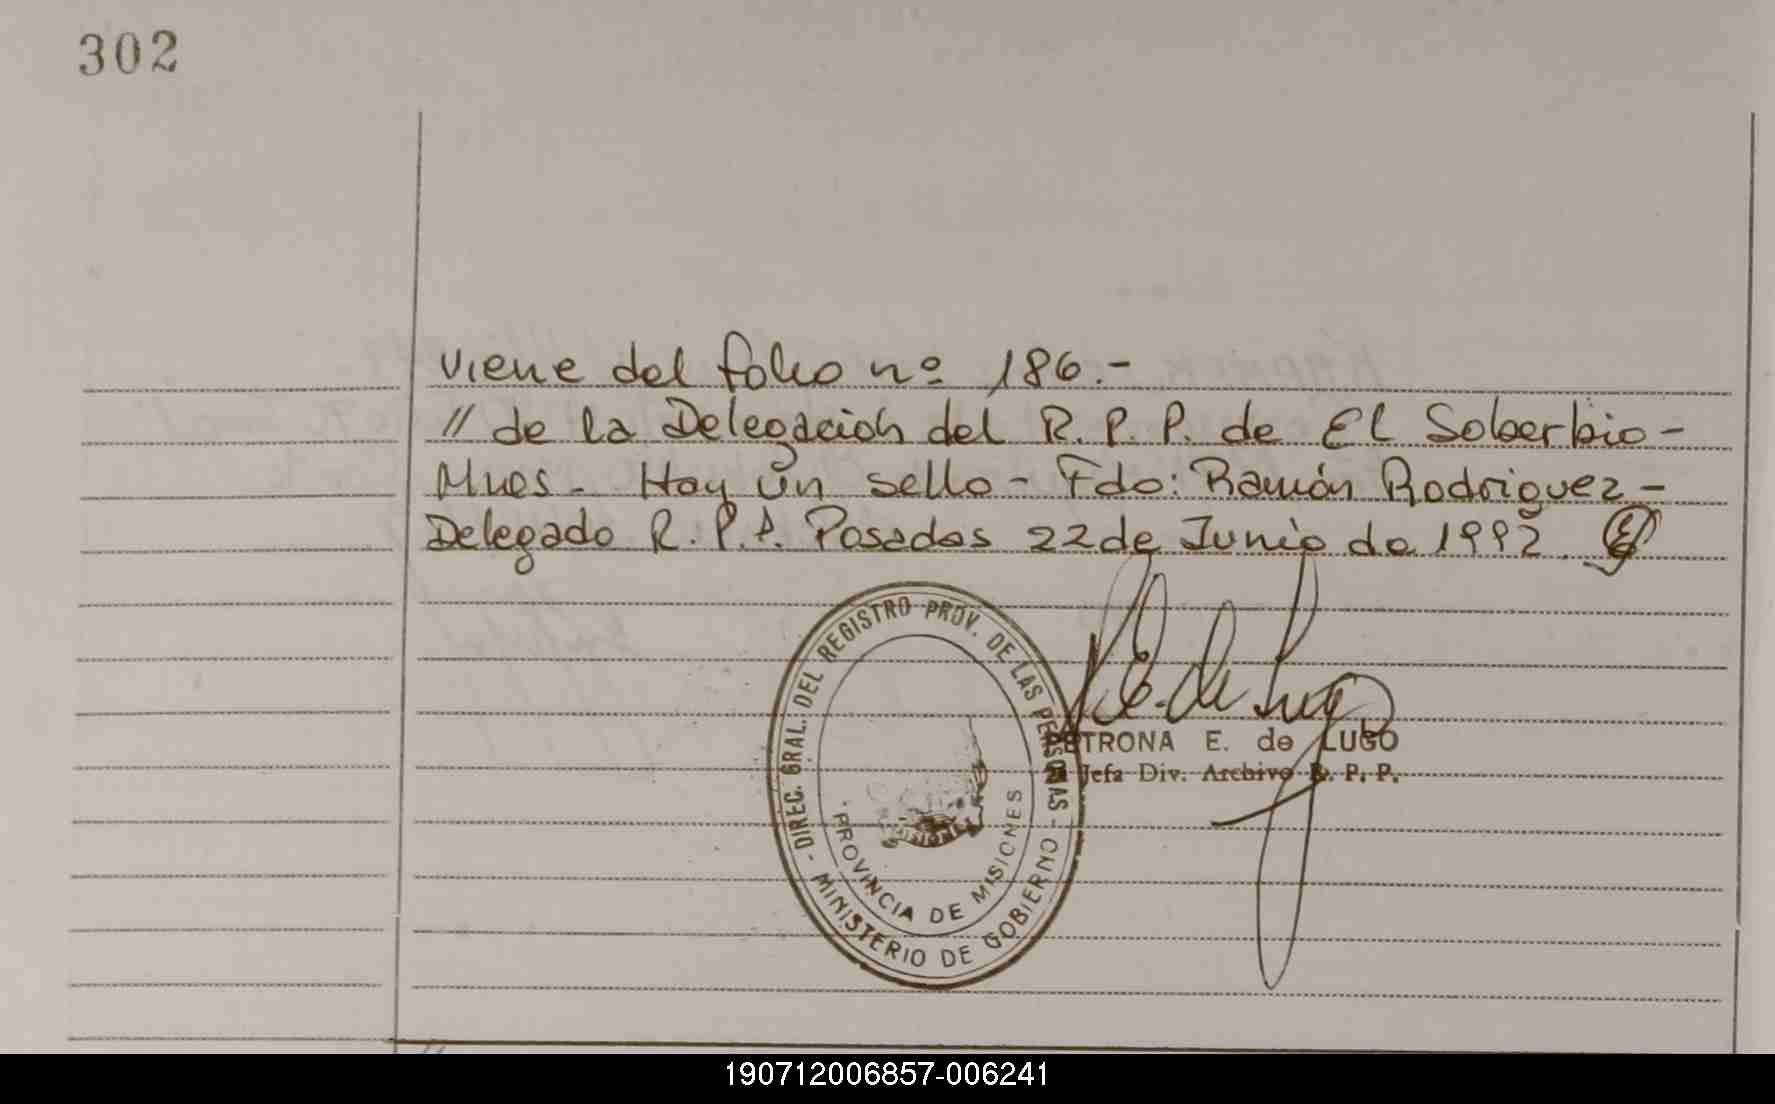 302
Viene del folio nº 186.-
// de la Delegación del R.P.P. de El Soberbio-
Mnes- Hay un sello- Fdo: Ramón Rodriguez-
Delegado R.P.P. Posadas 22 de Junio de 1992.
- DIREC. GRAL. DEL REGISTRO PROV. DE LAS PERSONAS -
MINISTERIO DE GOBIERNO
PROVINCIA DE MISIONES
MISIONES
P.E. de Lugo
PETRONA E. de LUGO
Jefa Div. Archivo R. P. P.
190712006857-006241